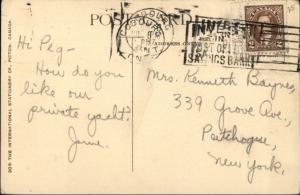 POST CARD
COBOURG
ONT
INVEST
IN
POST OFFICE
SAVINGS BANK
2
Hi Peg-
How do you
like our
private yacht?
Jane.
Mrs. Kenneth Baynes,
339 Grove Ave.,
Patchogue,
New York.
209 THE INTERNATIONAL STATIONERY CO., PICTON, CANADA